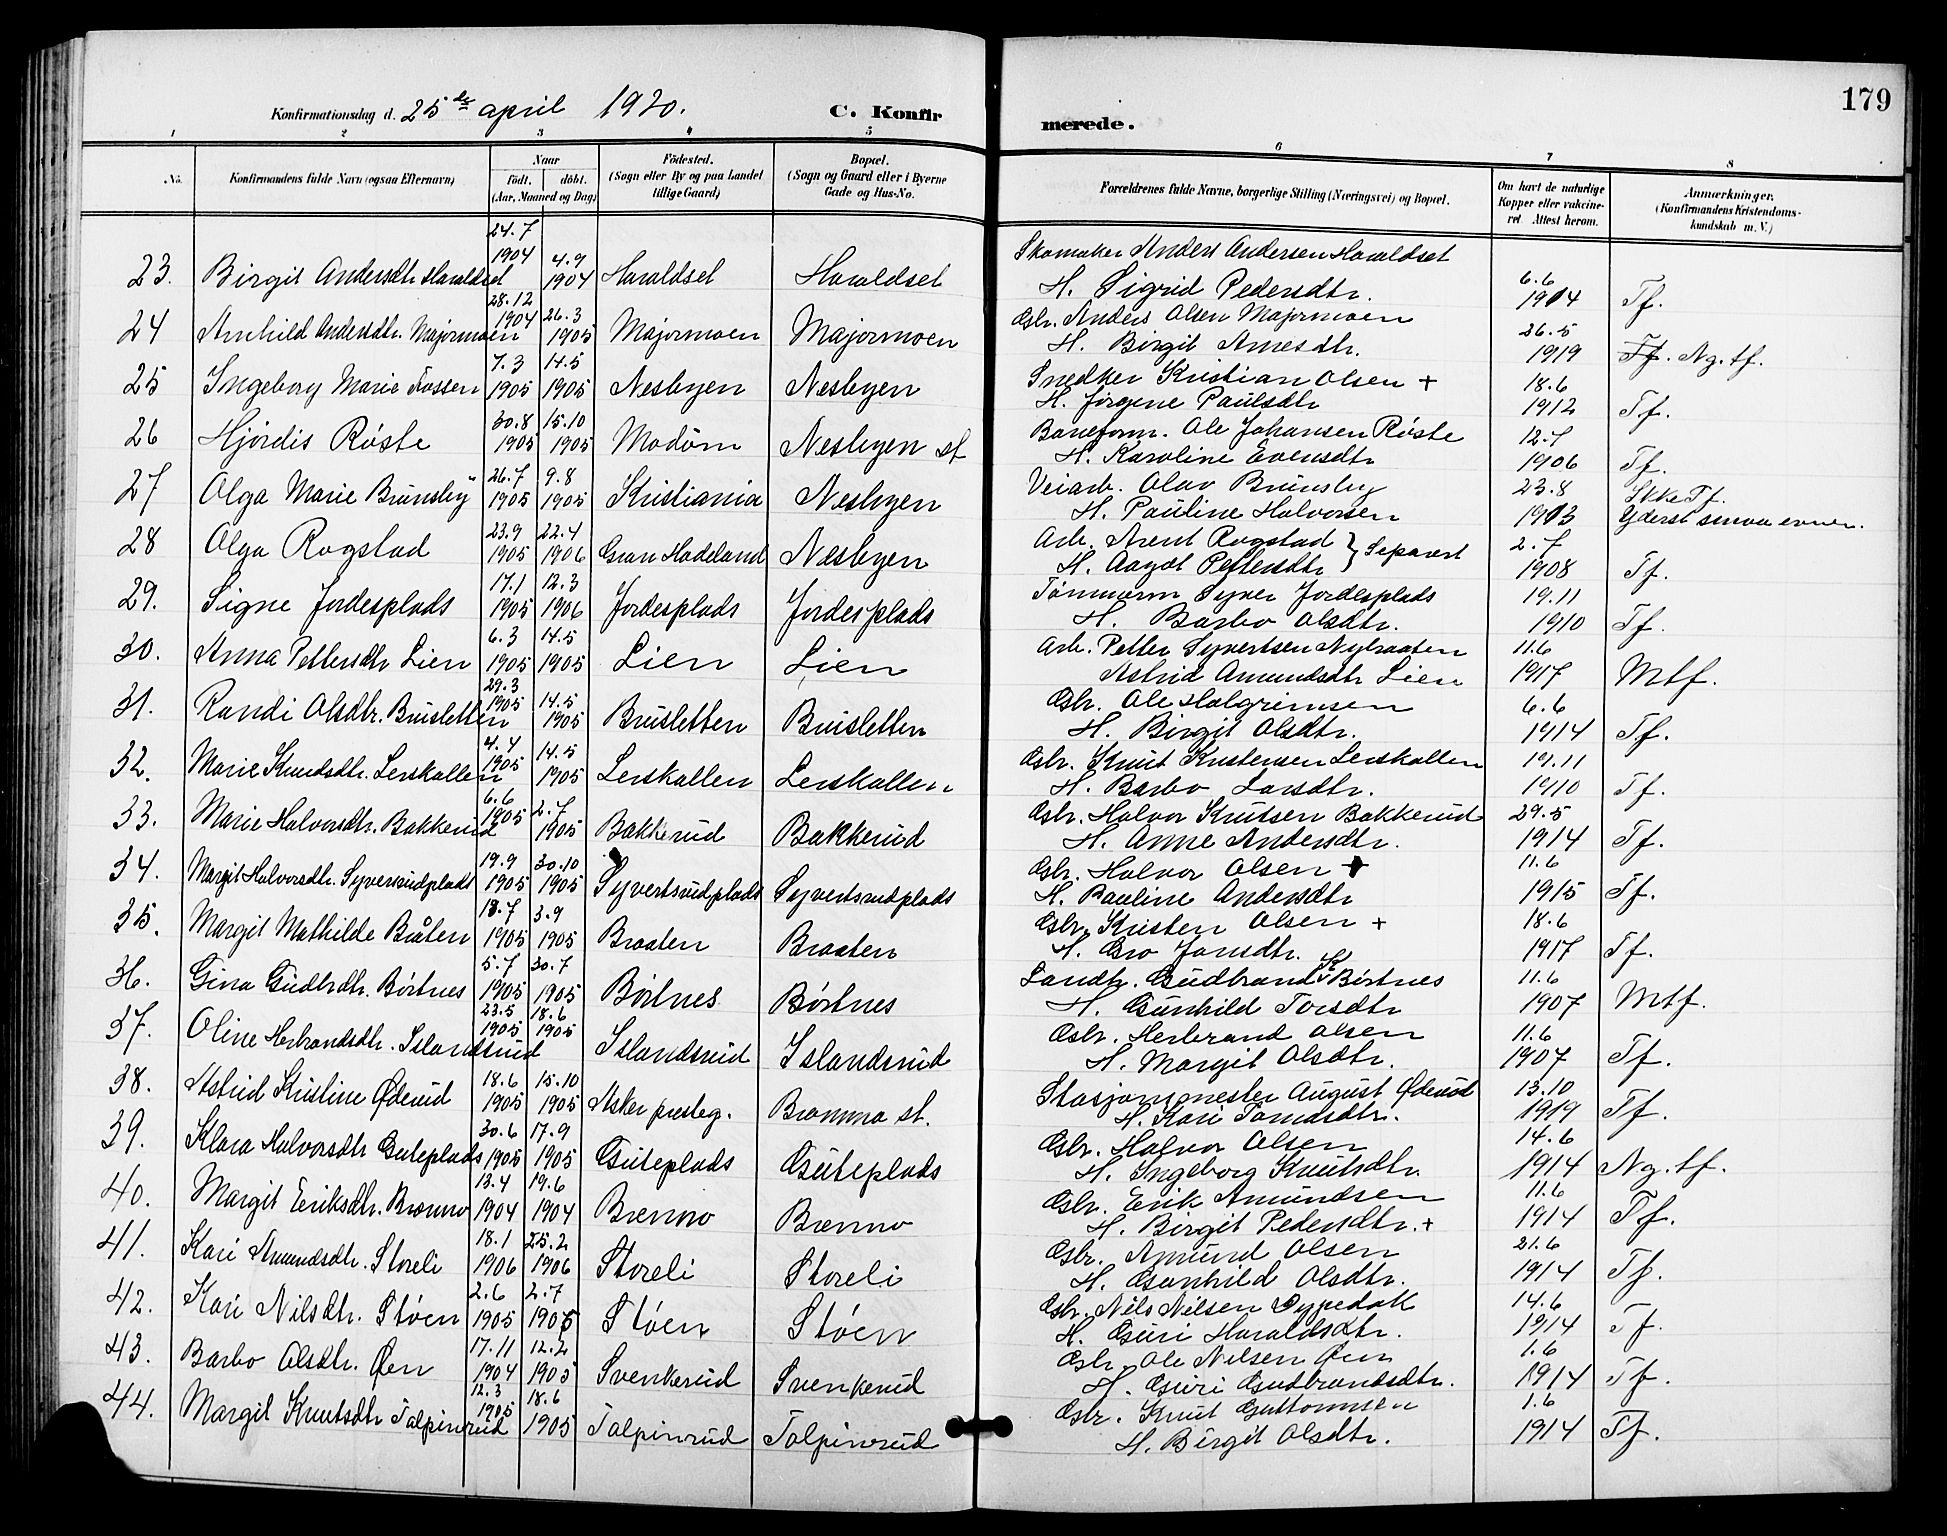 179
Konfirmationsdag d. 25de april 1920. C. Konfirmerede.
1 2 3 4 5 6 7 8
No. Konfirmandens fulde Navn (ogsaa Efternavn) Naar Födt. döbt. (Aar, Maaned og Dag) Födested. (Sogn eller By og paa Landet tillige Gaard) Bopæl. (Sogn og Gaard eller i Byerne Gade og Hus-No. Forældrenes fulde Navne, borgerlige Stilling (Næringsvei) og Bopæl. Om havt de naturlige Kopper eller vakcineret. Attest herom. Anmærkninger. (Konfirmandens Kristendomskundskab m. V.)
23. Birgit Andersdtr Haraldset 24.7 1904 4.9 1904 Haraldset Haraldset Skomaker Anders Andersen Haraldset H. Sigrid Pedersdtr. 6.6 1914 Tf.
24 Arnhild Andersdtr. Majormoen 28.12 1904 26.3 1905 Majormoen Majormoen Gbr. Anders Olsen Majormoen H. Birgit Arnesdtr. 26.5 1919 Tf. Ng. tf.
25 Ingeborg Marie Fossen 7.3 1905 14.5 1905 Nesbyen Nesbyen Snedker Kristian Olsen + H. Jørgine Paulsdtr 18.6 1912 Tf.
26 Hjördis Røste 30.8 1905 15.10 1905 Modum Nesbyen st Baneform. Ole Johansen Røste H. Karoline Evensdtr 12.7 1906 Tf.
27 Olga Marie Brunsby 26.7 1905 9.8 1905 Kristiania Nesbyen Veiarb. Olav Brunsby H. Pauline Halvorsen 23.8 1913 Ikke Tf. Yderst smaa evner.
28 Olga Rogstad 23.9 1905 22.4 1906 Gran Hadeland Nesbyen Arb. Arent Rogstad H. Aagot Pettersdtr } Separert 2.7 1908 Tf.
29. Signe Jordesplads 17.1 1905 12.3 1906 Jordesplads Jordesplads Tømmerm Syver Jordesplads H. Barbo Olsdtr. 19.11 1910 Tf.
30. Anna Pettersdtr Lien 6.3 1905 14.5 1905 Lien Lien Arb. Petter Syvertsen Nybraaten Astrid Amundsdtr Lien 11.6 1917 Mtf.
31. Randi Olsdtr. Brusletten 29.3 1905 14.5 1905 Brusletten Brusletten Gbr. Ole Halgrimsen H. Birgit Olsdtr. 6.6 1914 Tf.
32. Marie Knudsdtr. Lerskallen 4.4 1905 14.5 1905 Lerskallen Lerskallen Gbr. Knut Kristensen Lerskallen H. Barbo Larsdtr. 19.11 1910 Tf.
33. Marie Halvorsdtr. Bakkerud 6.6 1905 2.7 1905 Bakkerud Bakkerud Gbr. Halvor Knutsen Bakkerud H. Anne Andersdtr. 29.5 1914 Tf.
34. Margit Halvorsdtr. Syversrudplads 19.9 1905 30.10 1905 Syvertsrudplads Syvertsrudplads Gbr. Halvor Olsen + H. Pauline Andersdtr 11.6 1915 Tf.
35. Margit Mathilde Bråten 18.7 1905 3.9 1905 Braaten Braaten Gbr. Kristen Olsen + H. Gro Jonsdtr. 18.6 1917 Tf.
36. Gina Gudbrdtr. Börtnes 5.7 1905 30.7 1905 Börtnes Børtnes Landh. Gudbrand K Børtnes H. Gunhild Torsdtr 11.6 1907 Mtf.
37. Oline Herbrandsdtr. Islandsrud 23.5 1905 18.6 1905 Islandsrud Islandsrud Gbr. Herbrand Olsen H. Margit Olsdtr. 11.6 1907 Tf.
38. Astrid Kristine Øderud 18.6 1905 15.10 1905 Asker presteg. Bromma st. Stasjonsmester August Øderud H. Kari Tomasdtr. 13.10 1919 Tf.
39. Klara Halvorsdtr Guteplads 30.6 1905 17.9 1905 Guteplads Guteplads Gbr. Halvor Olsen H. Ingeborg Knutsdtr. 14.6 1914 Ng. tf.
40. Margit Eriksdtr. Brenno 13.4 1904 19.6 1904 Brenno Brenno Gbr. Erik Amundsen H. Birgit Pedersdtr. + 11.6 1914 Tf.
41. Kari Amundsdtr. Storeli 18.1 1906 25.2 1906 Storeli Storeli Gbr. Amund Olsen H. Gunhild Olsdtr. 21.6 1914 Tf.
42. Kari Nilsdtr. Støen 2.6 1905 2.7 1905 Støen Støen Gbr. Nils Nilsen Dypedok H. Guri Haraldsdtr. 14.6 1914 Tf.
43. Barbo Olsdtr. Øen 17.11 1904 12.2 1905 Svenkerud Svenkerud Gbr. Ole Nilsen Øen H. Guri Gudbrandsdtr. 1.6 1914 Tf.
44. Margit Knutsdtr Talpinrud 12.3 1905 18.6 1905 Talpinrud Talpinrud Gbr. Knut Guttormsen H. Birgit Olsdtr. 1.6 1914 Tf.